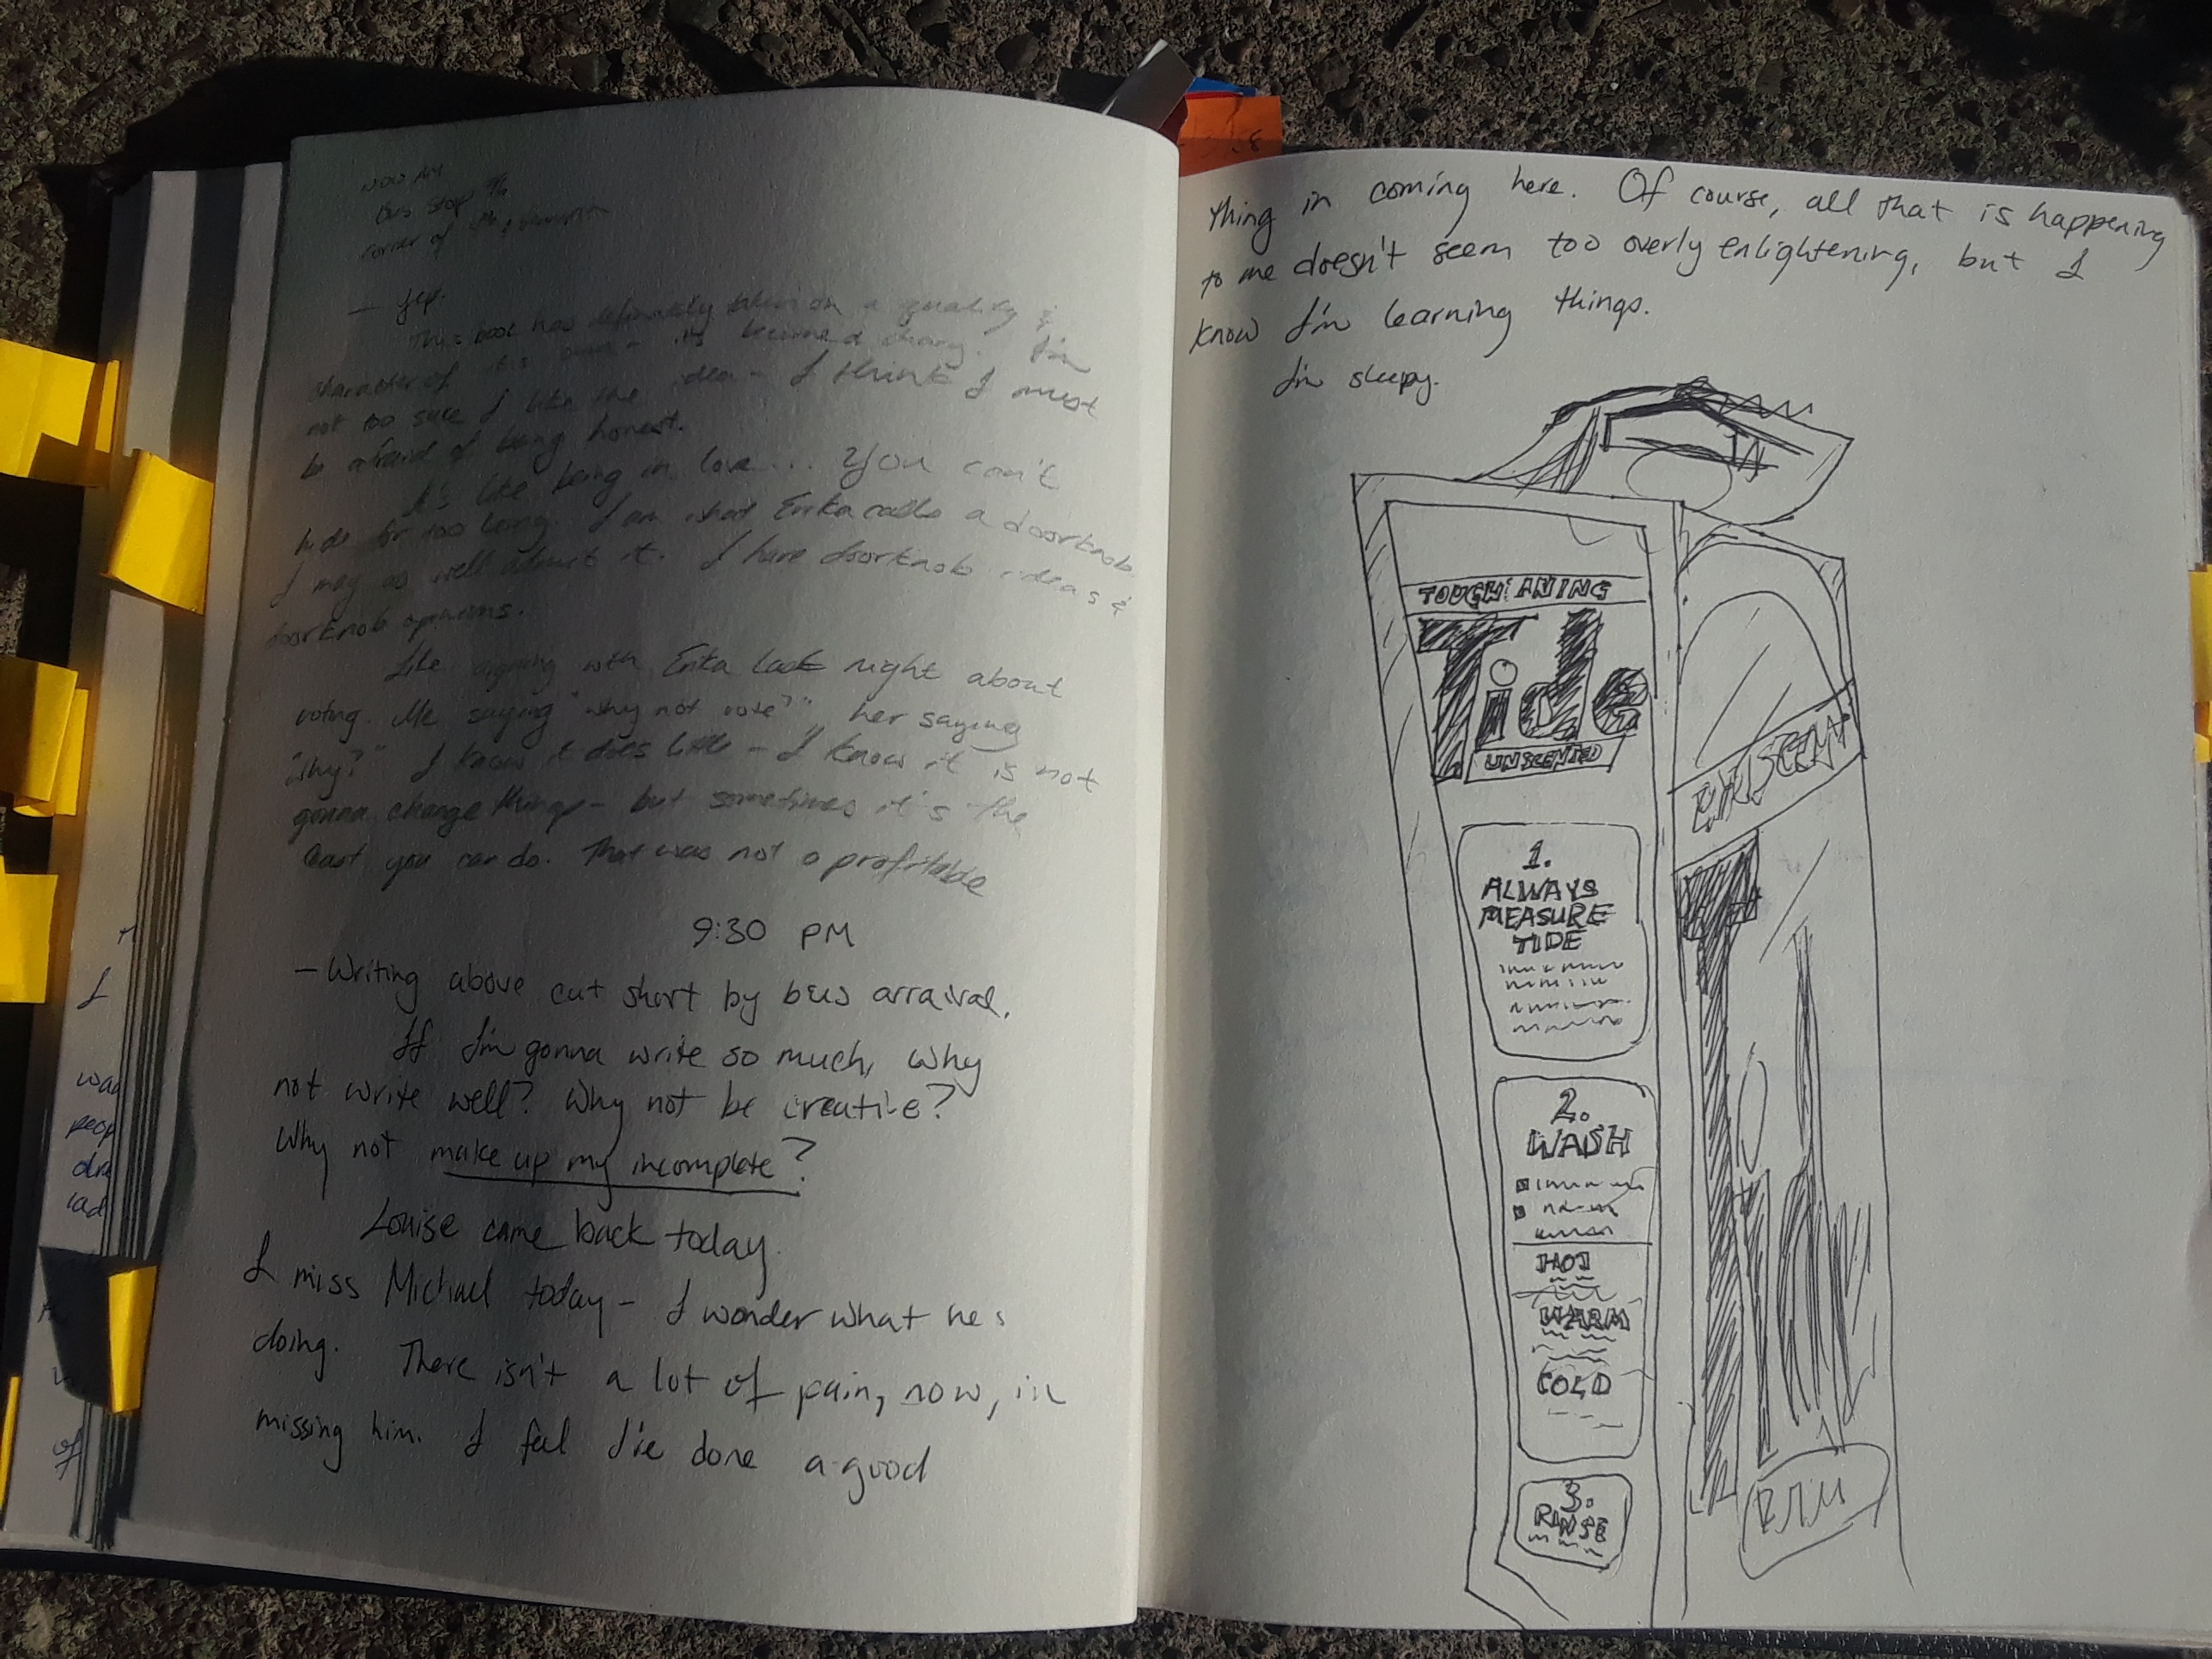 Bus Stop
corner of
— yep.
This book has definately taken on a quality &
character of its own - its become a diary. I'm
not too sure I like the idea - I think I must
be afraid of being honest.
It's like being in love... You can't
hide for too long. I am what Erika calls a doorknob
I may as well admit it. I have doorknob ideas &
doorknob opinions.
Like arguing with Erika last night about
voting. Me saying "why not vote?" her saying
"why?" I know it does little - I know it is not
gonna change things - but sometimes it's the
least you can do. That was not a profitable
9:30 PM
— Writing above cut short by bus arraival.
If I'm gonna write so much, why
not write well? Why not be creative?
Why not make up my incomplete?
Louise came back today.
I miss Michael today - I wonder what he's
doing. There isn't a lot of pain, now, in
missing him. I feel I've done a good
thing in coming here. Of course, all that is happening
to me doesn't seem too overly enlightening, but I
know I'm learning things.
I'm sleepy.
TOUGH ANING
Tide
UNSCENTED
1.
ALWAYS
MEASURE
TIDE
2.
WASH
HOT
WARM
COLD
3.
RINSE
I
was
of